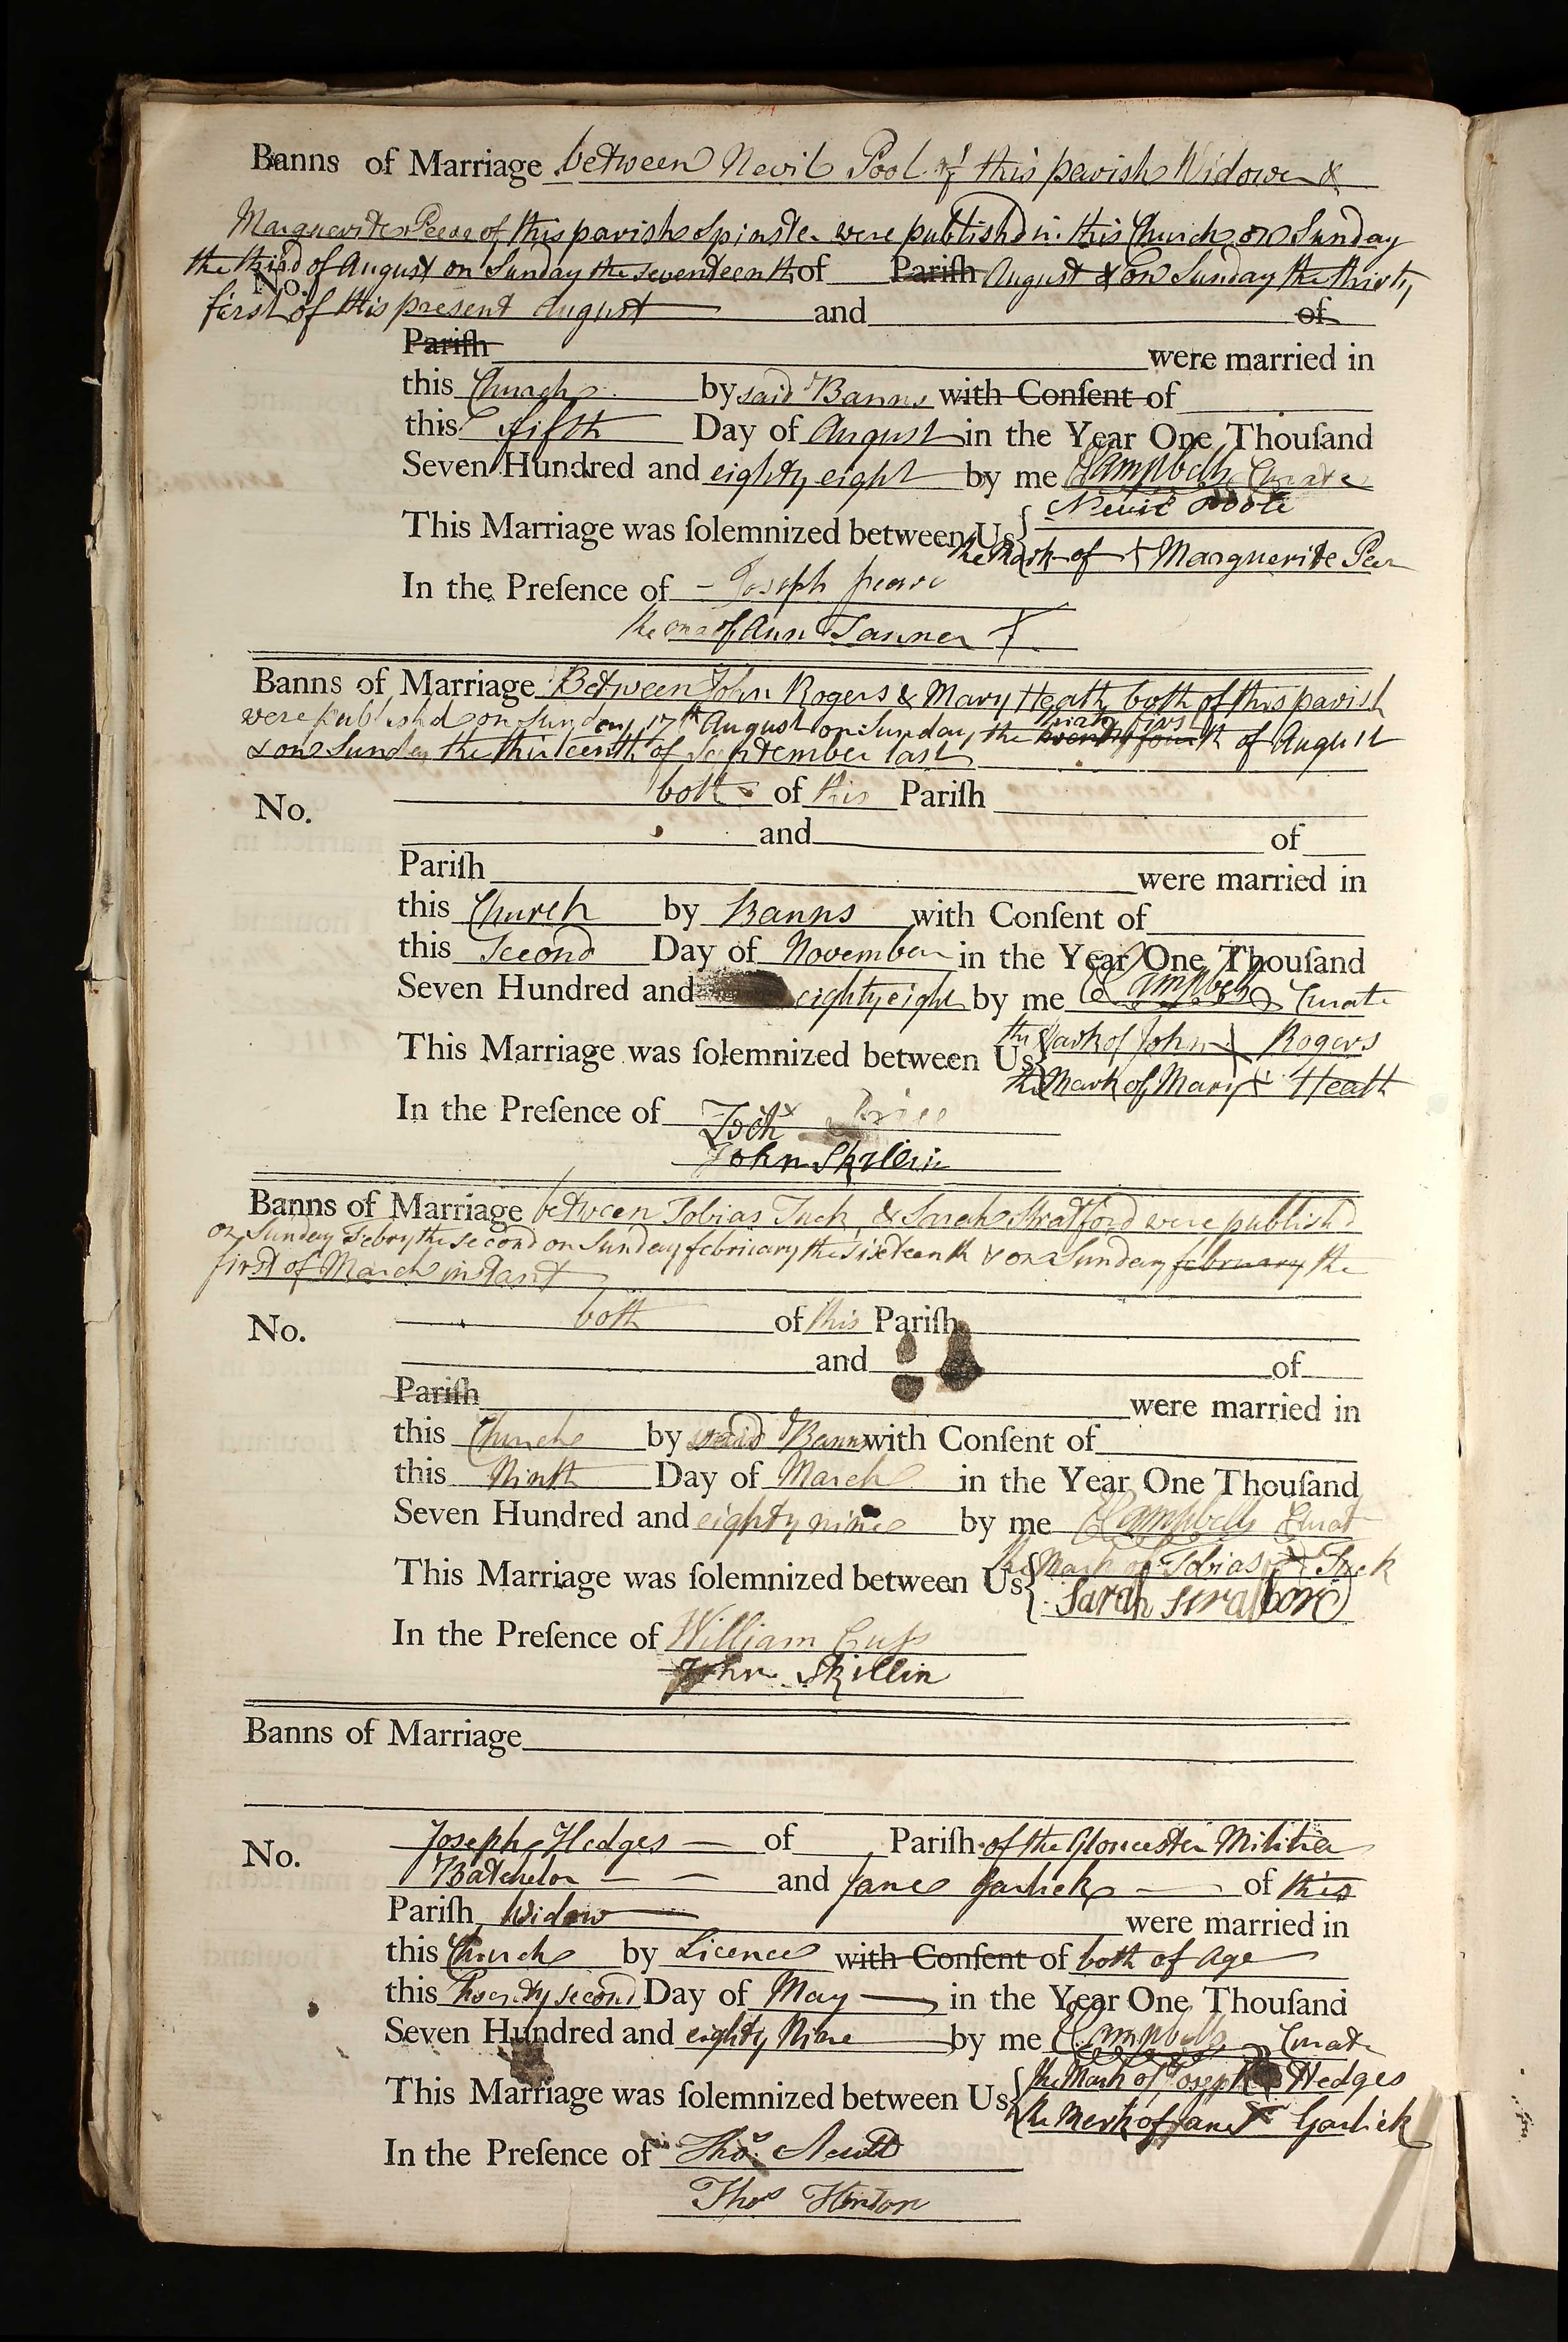 Banns of Marriage between Nevil Pool of this parish Widower &
Marguerite Peere of this parish Spinster were published in this Church on Sunday
the third of August on Sunday the seventeenth of Pariſh August & on Sunday the thirty
No.
first of this present August and of
Pariſh were married in
this Church by said Banns with Conſent of
this fifth Day of August in the Year One Thouſand
Seven Hundred and eighty eight by me Campbell Curate
Nevil Poole
This Marriage was ſolemnized between Us
the Mark of X Marguerite Peer
In the Preſence of Joseph
the of Ann Tanner X
Banns of Marriage Between John Rogers & Mary Heath both of this parish
were published on Sunday 17th August on Sunday the twenty fourth thirty first of August
& on Sunday the thirteenth of September last
both of this Pariſh
No.
and of
Pariſh were married in
this Church by Banns with Conſent of
this Second Day of November in the Year One Thouſand
Seven Hundred and eighty eight by me Campbell Curate
the Mark of John X Rogers
This Marriage was ſolemnized between Us
the Mark of Mary X Heath
In the Preſence of
John Skillin
Banns of Marriage between Tobias Tuck & Sarah Stratford were publishd
on Sunday Febry the second on Sunday february the sixteenth & on Sunday february the
first of March instant
both of this Pariſh
No.
and of
Pariſh were married in
this Church by said Banns with Conſent of
this Ninth Day of March in the Year One Thouſand
Seven Hundred and eighty nine by me Campbell Curat
the Mark of Tobias X Tuck
This Marriage was ſolemnized between Us
Sarah
In the Preſence of William Cuss
John Skillin
Banns of Marriage
No.
Joseph Hedges of Pariſh of the Gloucester Militia
Batchelor and Jane Garlick of this
Pariſh Widow were married in
this Church by Licence with Conſent of both of Age
this Twenty second Day of May in the Year One Thouſand
Seven Hundred and eighty Nine by me Campbell Curate
the Mark of Joseph Hedges
This Marriage was ſolemnized between Us
the Merk of Jane X Garlick
In the Preſence of Thos.
Thos Hinton